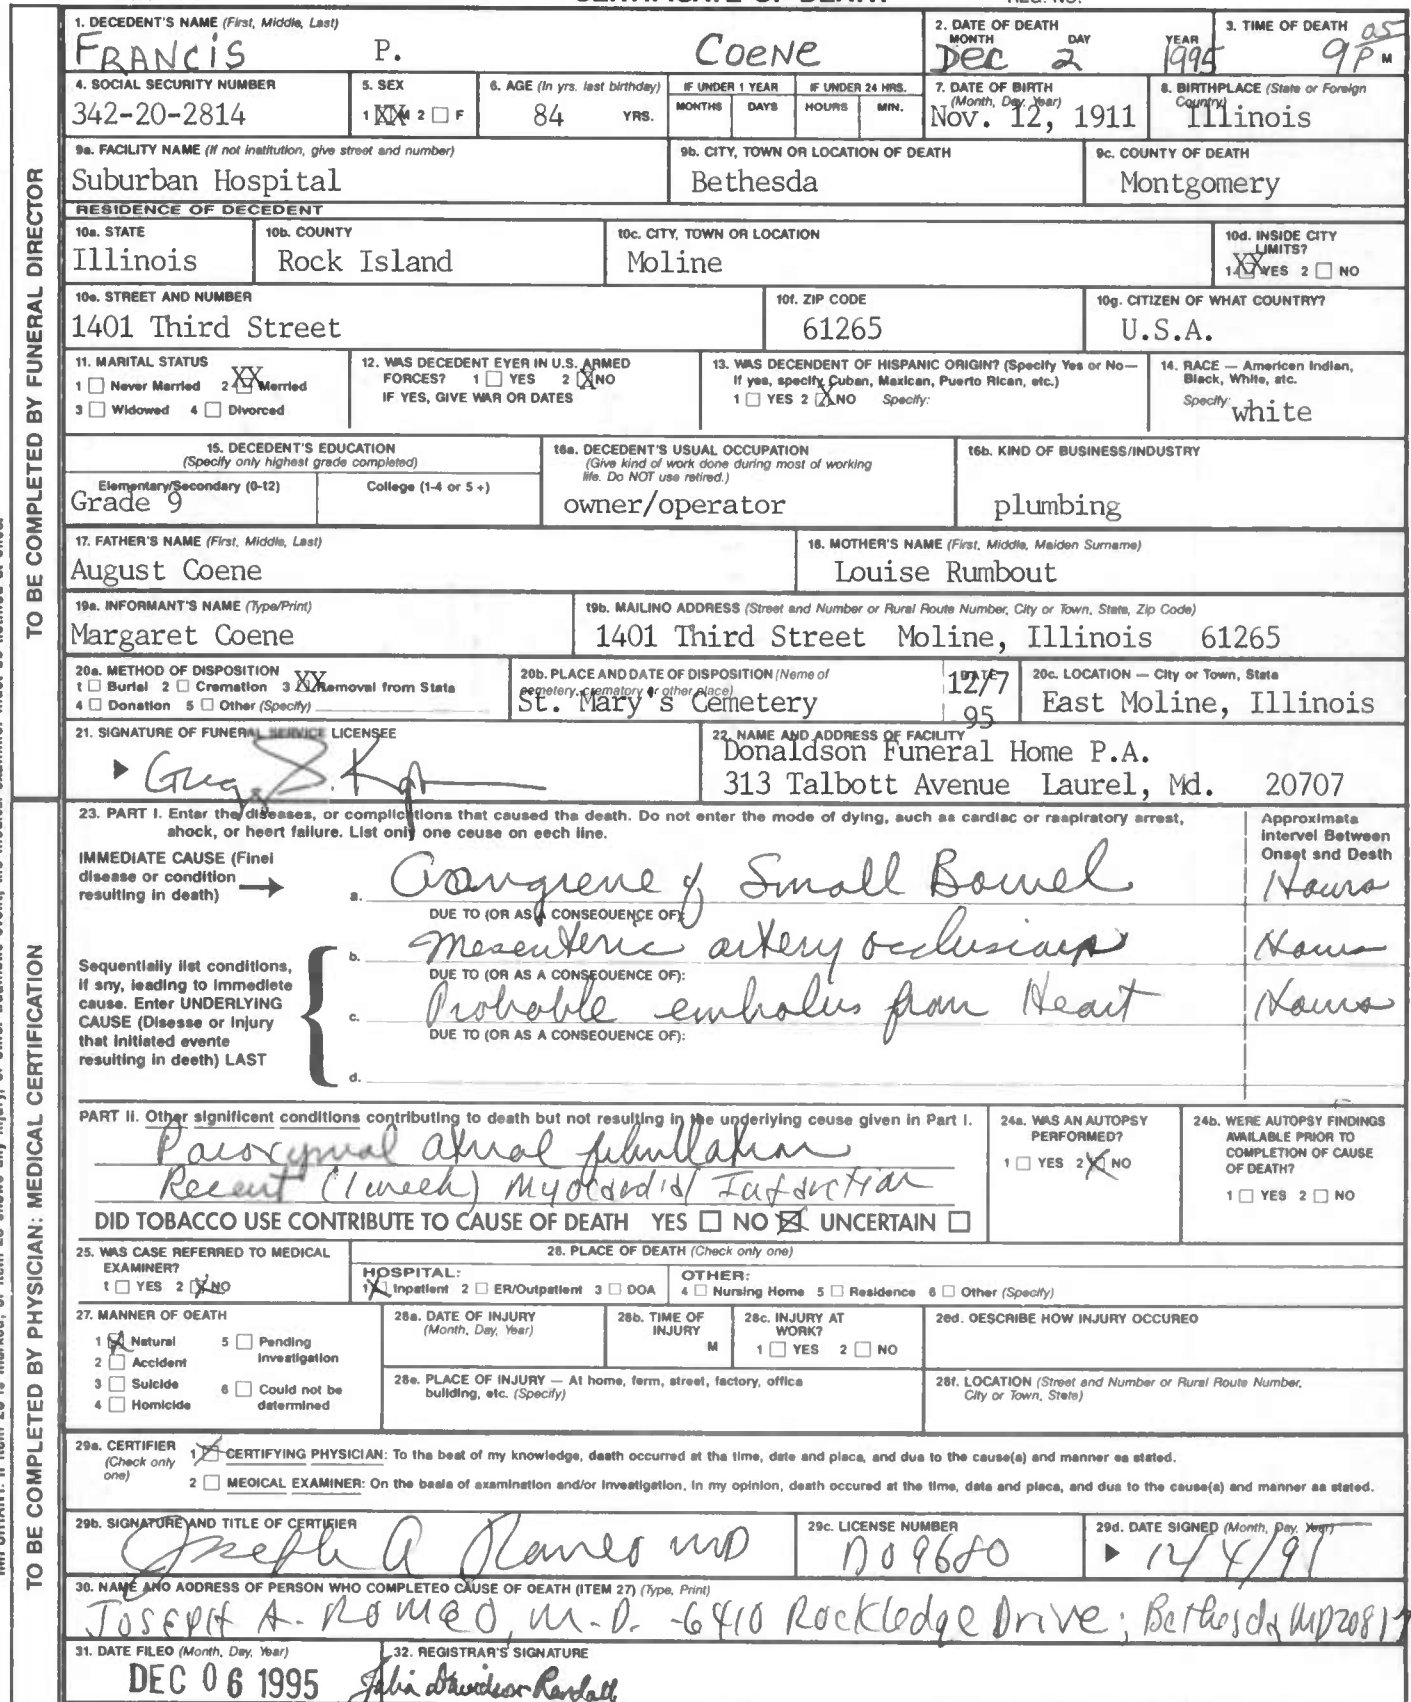 1. DECEDENT'S NAME (First, Middle, Last)
FRANCIS P. COENE
2. DATE OF DEATH
MONTH DAY YEAR
Dec 2 1995
3. TIME OF DEATH
9 05 P M
4. SOCIAL SECURITY NUMBER
342-20-2814
5. SEX
1 XX M 2 ☐ F
6. AGE (In yrs. last birthday)
84 YRS.
IF UNDER 1 YEAR
MONTHS DAYS
IF UNDER 24 HRS.
HOURS MIN.
7. DATE OF BIRTH
(Month, Day, Year)
Nov. 12, 1911
8. BIRTHPLACE (State or Foreign
Country)
Illinois
9a. FACILITY NAME (If not institution, give street and number)
Suburban Hospital
9b. CITY, TOWN OR LOCATION OF DEATH
Bethesda
9c. COUNTY OF DEATH
Montgomery
RESIDENCE OF DECEDENT
10a. STATE
Illinois
10b. COUNTY
Rock Island
10c. CITY, TOWN OR LOCATION
Moline
10d. INSIDE CITY
LIMITS?
1 XX YES 2 ☐ NO
10e. STREET AND NUMBER
1401 Third Street
10f. ZIP CODE
61265
10g. CITIZEN OF WHAT COUNTRY?
U.S.A.
11. MARITAL STATUS
1 ☐ Never Married 2 XX Married
3 ☐ Widowed 4 ☐ Divorced
12. WAS DECEDENT EVER IN U.S. ARMED
FORCES? 1 ☐ YES 2 X NO
IF YES, GIVE WAR OR DATES
13. WAS DECENDENT OF HISPANIC ORIGIN? (Specify Yes or No—
If yes, specify Cuban, Mexican, Puerto Rican, etc.)
1 ☐ YES 2 X NO Specify:
14. RACE — American Indian,
Black, White, etc.
Specify: white
15. DECEDENT'S EDUCATION
(Specify only highest grade completed)
Elementary/Secondary (0-12) College (1-4 or 5+)
Grade 9
16a. DECEDENT'S USUAL OCCUPATION
(Give kind of work done during most of working
life. Do NOT use retired.)
owner/operator
16b. KIND OF BUSINESS/INDUSTRY
plumbing
17. FATHER'S NAME (First, Middle, Last)
August Coene
18. MOTHER'S NAME (First, Middle, Maiden Surname)
Louise Rumbout
19a. INFORMANT'S NAME (Type/Print)
Margaret Coene
19b. MAILING ADDRESS (Street and Number or Rural Route Number, City or Town, State, Zip Code)
1401 Third Street Moline, Illinois 61265
20a. METHOD OF DISPOSITION
1 ☐ Burial 2 ☐ Cremation 3 XX Removal from State
4 ☐ Donation 5 ☐ Other (Specify)
20b. PLACE AND DATE OF DISPOSITION (Name of
cemetery, crematory or other place)
St. Mary's Cemetery
DATE
12/7
95
20c. LOCATION — City or Town, State
East Moline, Illinois
21. SIGNATURE OF FUNERAL SERVICE LICENSEE
22. NAME AND ADDRESS OF FACILITY
Donaldson Funeral Home P.A.
313 Talbott Avenue Laurel, Md. 20707
TO BE COMPLETED BY FUNERAL DIRECTOR
23. PART I. Enter the diseases, or complications that caused the death. Do not enter the mode of dying, such as cardiac or respiratory arrest,
shock, or heart failure. List only one cause on each line.
Approximate
Interval Between
Onset and Death
IMMEDIATE CAUSE (Final
disease or condition
resulting in death)
a. Gangrene of Small Bowel Hours
DUE TO (OR AS A CONSEQUENCE OF):
b. Mesenteric artery occlusion Hours
DUE TO (OR AS A CONSEQUENCE OF):
c. Probable embolus from Heart Hours
DUE TO (OR AS A CONSEQUENCE OF):
d.
Sequentially list conditions,
if any, leading to immediate
cause. Enter UNDERLYING
CAUSE (Disease or injury
that initiated events
resulting in death) LAST
PART II. Other significant conditions contributing to death but not resulting in the underlying cause given in Part I.
Paroxymal atrial fibrillation
Recent (1 week) Myocardial Infarction
DID TOBACCO USE CONTRIBUTE TO CAUSE OF DEATH YES ☐ NO ☒ UNCERTAIN ☐
24a. WAS AN AUTOPSY
PERFORMED?
1 ☐ YES 2 X NO
24b. WERE AUTOPSY FINDINGS
AVAILABLE PRIOR TO
COMPLETION OF CAUSE
OF DEATH?
1 ☐ YES 2 ☐ NO
25. WAS CASE REFERRED TO MEDICAL
EXAMINER?
1 ☐ YES 2 X NO
26. PLACE OF DEATH (Check only one)
HOSPITAL:
1 X Inpatient 2 ☐ ER/Outpatient 3 ☐ DOA
OTHER:
4 ☐ Nursing Home 5 ☐ Residence 6 ☐ Other (Specify)
27. MANNER OF DEATH
1 X Natural 5 ☐ Pending
Investigation
2 ☐ Accident
3 ☐ Suicide 6 ☐ Could not be
determined
4 ☐ Homicide
28a. DATE OF INJURY
(Month, Day, Year)
28b. TIME OF
INJURY
M
28c. INJURY AT
WORK?
1 ☐ YES 2 ☐ NO
28d. DESCRIBE HOW INJURY OCCURED
28e. PLACE OF INJURY — At home, farm, street, factory, office
building, etc. (Specify)
28f. LOCATION (Street and Number or Rural Route Number,
City or Town, State)
29a. CERTIFIER
(Check only
one)
1 X CERTIFYING PHYSICIAN: To the best of my knowledge, death occurred at the time, date and place, and due to the cause(s) and manner as stated.
2 ☐ MEDICAL EXAMINER: On the basis of examination and/or investigation, in my opinion, death occured at the time, date and place, and due to the cause(s) and manner as stated.
29b. SIGNATURE AND TITLE OF CERTIFIER
Joseph A Romeo MD
29c. LICENSE NUMBER
D09680
29d. DATE SIGNED (Month, Day, Year)
12/4/95
30. NAME AND ADDRESS OF PERSON WHO COMPLETED CAUSE OF DEATH (ITEM 27) (Type, Print)
JOSEPH A. ROMEO, M.D. -6410 Rockledge Drive; Bethesda MD 20817
31. DATE FILED (Month, Day, Year)
DEC 06 1995
32. REGISTRAR'S SIGNATURE
Julia Davidson-Randall
TO BE COMPLETED BY PHYSICIAN: MEDICAL CERTIFICATION